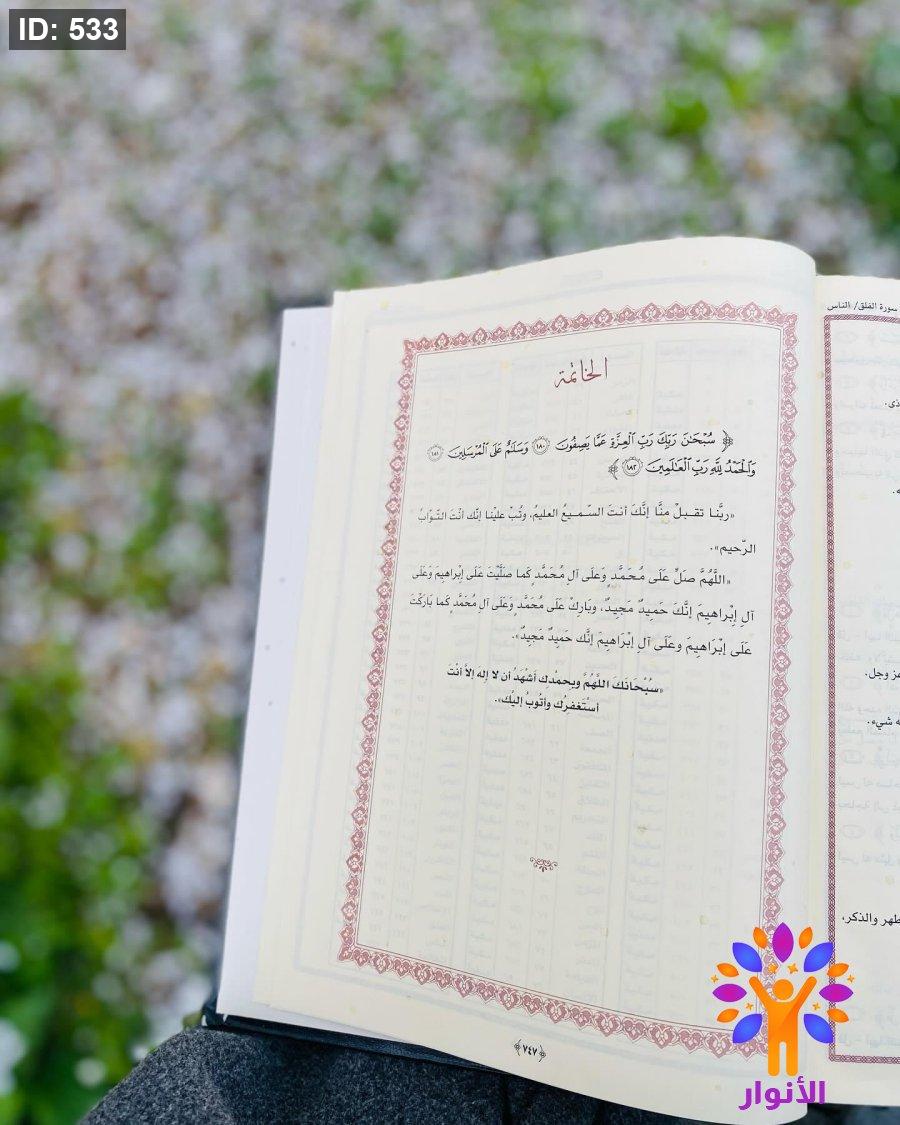 ID: 533
الخاتمة
﴿ سُبْحَٰنَ رَبِّكَ رَبِّ ٱلْعِزَّةِ عَمَّا يَصِفُونَ ١٨٠ وَسَلَٰمٌ عَلَى ٱلْمُرْسَلِينَ ١٨١
وَٱلْحَمْدُ لِلَّهِ رَبِّ ٱلْعَٰلَمِينَ ١٨٢ ﴾
«ربَّنا تقبلْ منَّا إنَّكَ أنتَ السّميعُ العليمُ، وتُبْ علَيْنا إنّك أنْتَ التّوّابُ
الرّحيم».
«اللَّهُمَّ صَلِّ عَلَى مُحَمَّدٍ وَعلَى آلِ مُحَمَّدٍ كَما صلَّيْتَ عَلَى إبْراهيمَ وَعَلَى
آلِ إبْراهيمَ إنَّكَ حَميدٌ مَجيدٌ، وبَارِكْ عَلَى مُحَمَّدٍ وَعَلَى آلِ مُحَمَّدٍ كَما بَارَكْتَ
عَلَى إبْرَاهيمَ وعَلَى آلِ إبْرَاهيمَ إنَّكَ حَميدٌ مَجيدٌ».
«سُبْحَانَكَ اللَّهُمَّ وبِحمْدِكَ أشْهَدُ أن لا إلهَ إلاَّ أنْتَ
أسْتَغفرُكَ وأتُوبُ إليْك».
﴿٧٤٧﴾
سورة الفلق/ الناس
عز وجل.
ـه شيء.
ـطهر والذكر،
الأنوار